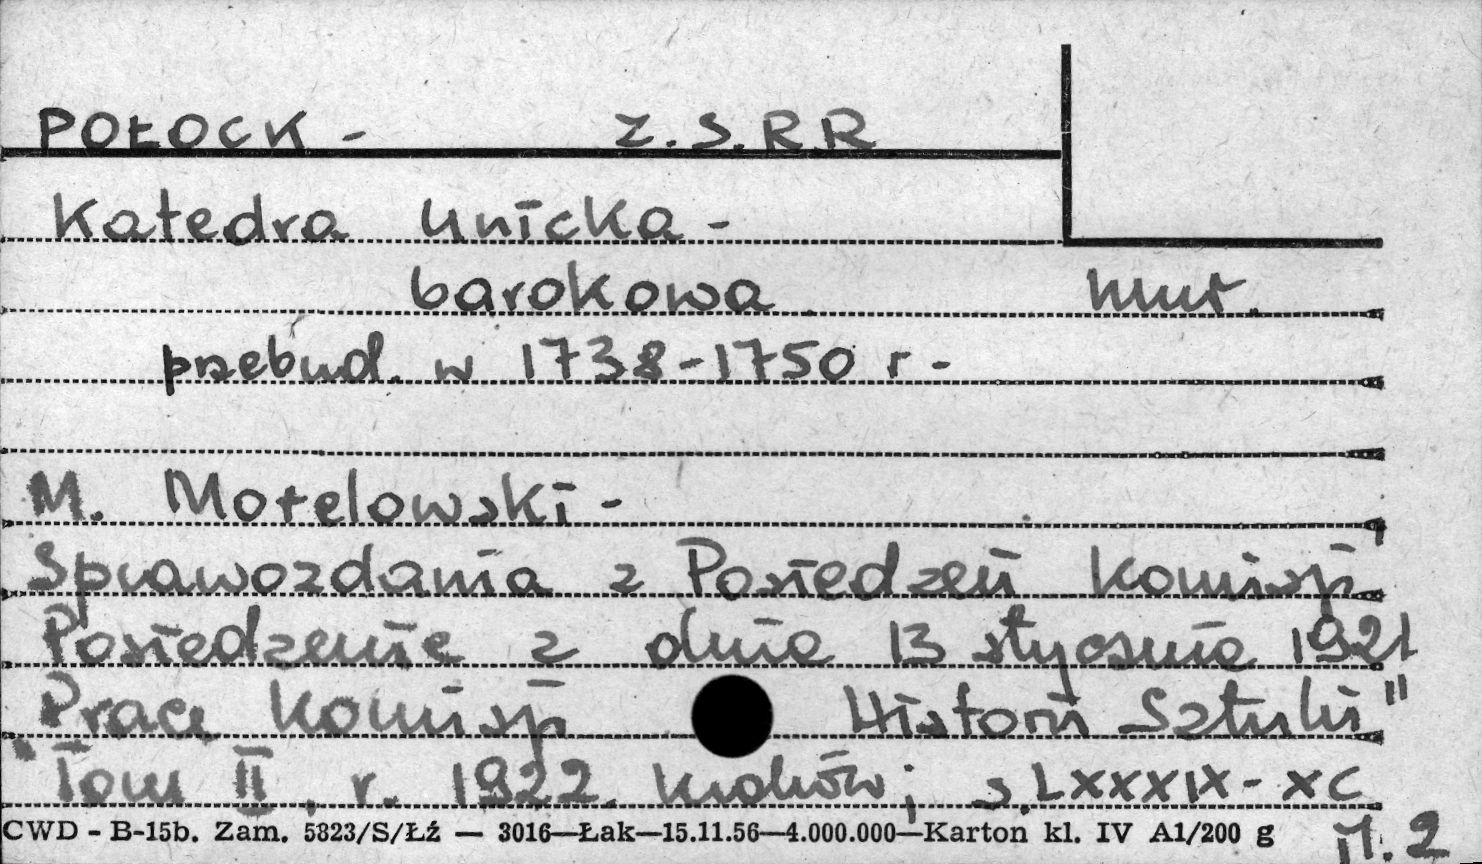 POŁOCK - Z.S.R.R
Katedra Unicka -
barokowa mur.
przebud. w 1738-1750 r -
M. Morelowski -
Sprawozdania z Posiedzeń Komisji
Posiedzenie z dnia 13 stycznia 1921
"Prace Komisji Historii Sztuki"
Tom II, r. 1922. Kraków; s. LXXXIX - XC
CWD - B-15b. Zam. 5823/S/Łź — 3016—Łak—15.11.56—4.000.000—Karton kl. IV A1/200 g